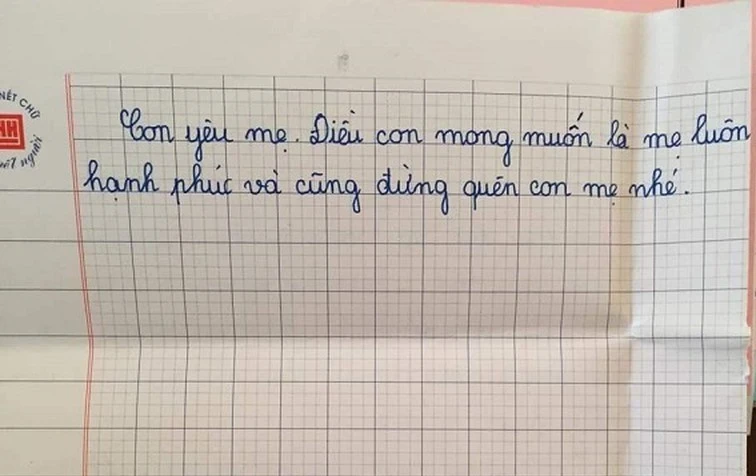 NÉT CHỮ
Con yêu mẹ. Điều con mong muốn là mẹ luôn
hạnh phúc và cũng đừng quên con mẹ nhé.